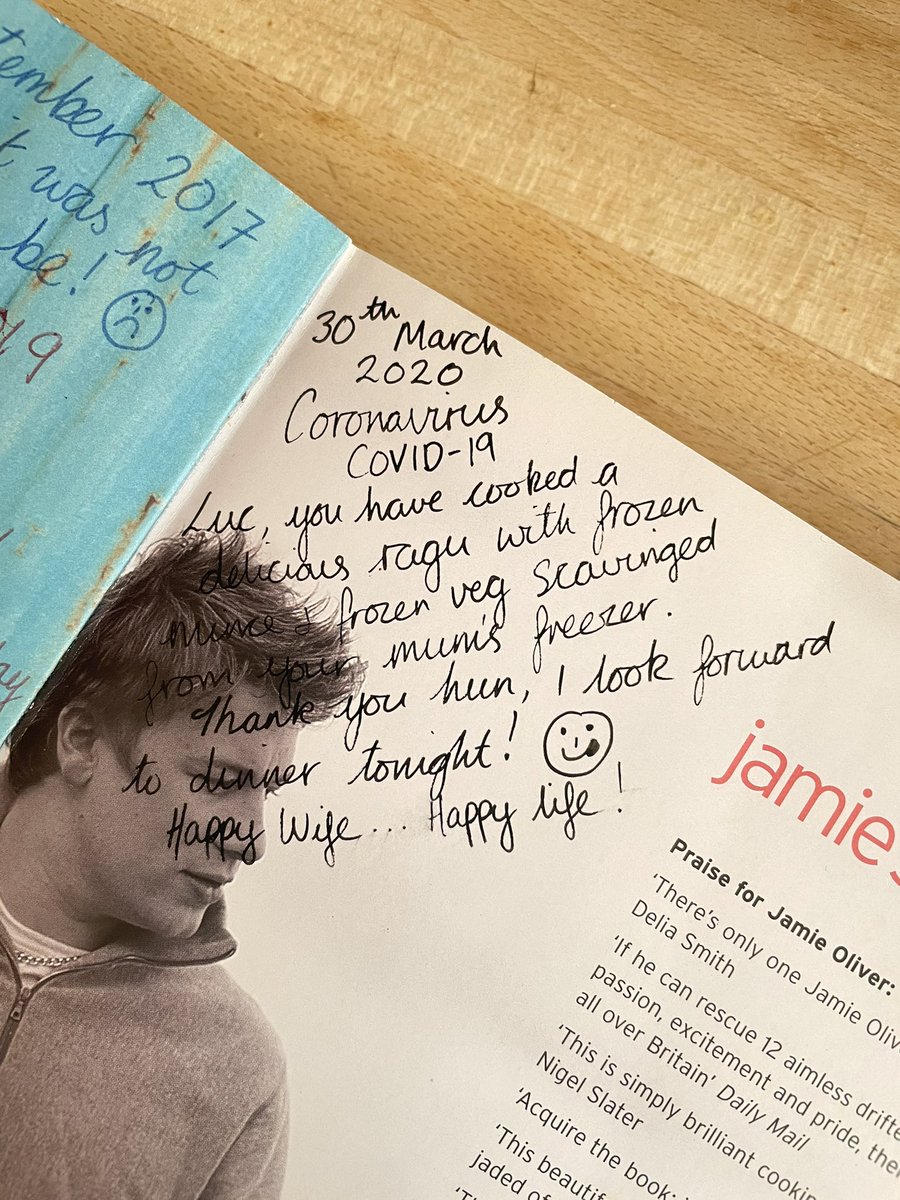 tember 2017
t was not
be!
19
30th March
2020
Coronavirus
COVID-19
Luc, you have cooked a
delicious ragu with frozen
mince & frozen veg scavinged
from your mum's freezer.
Thank you hun, I look forward
to dinner tonight!
Happy Wife... Happy life!
jamie's
Praise for Jamie Oliver:
'There's only one Jamie Oliv
Delia Smith
'If he can rescue 12 aimless drifte
passion, excitement and pride, the
all over Britain' Daily Mail
'This is simply brilliant cookin
Nigel Slater
'Acquire the book:
'This beautif
jaded of